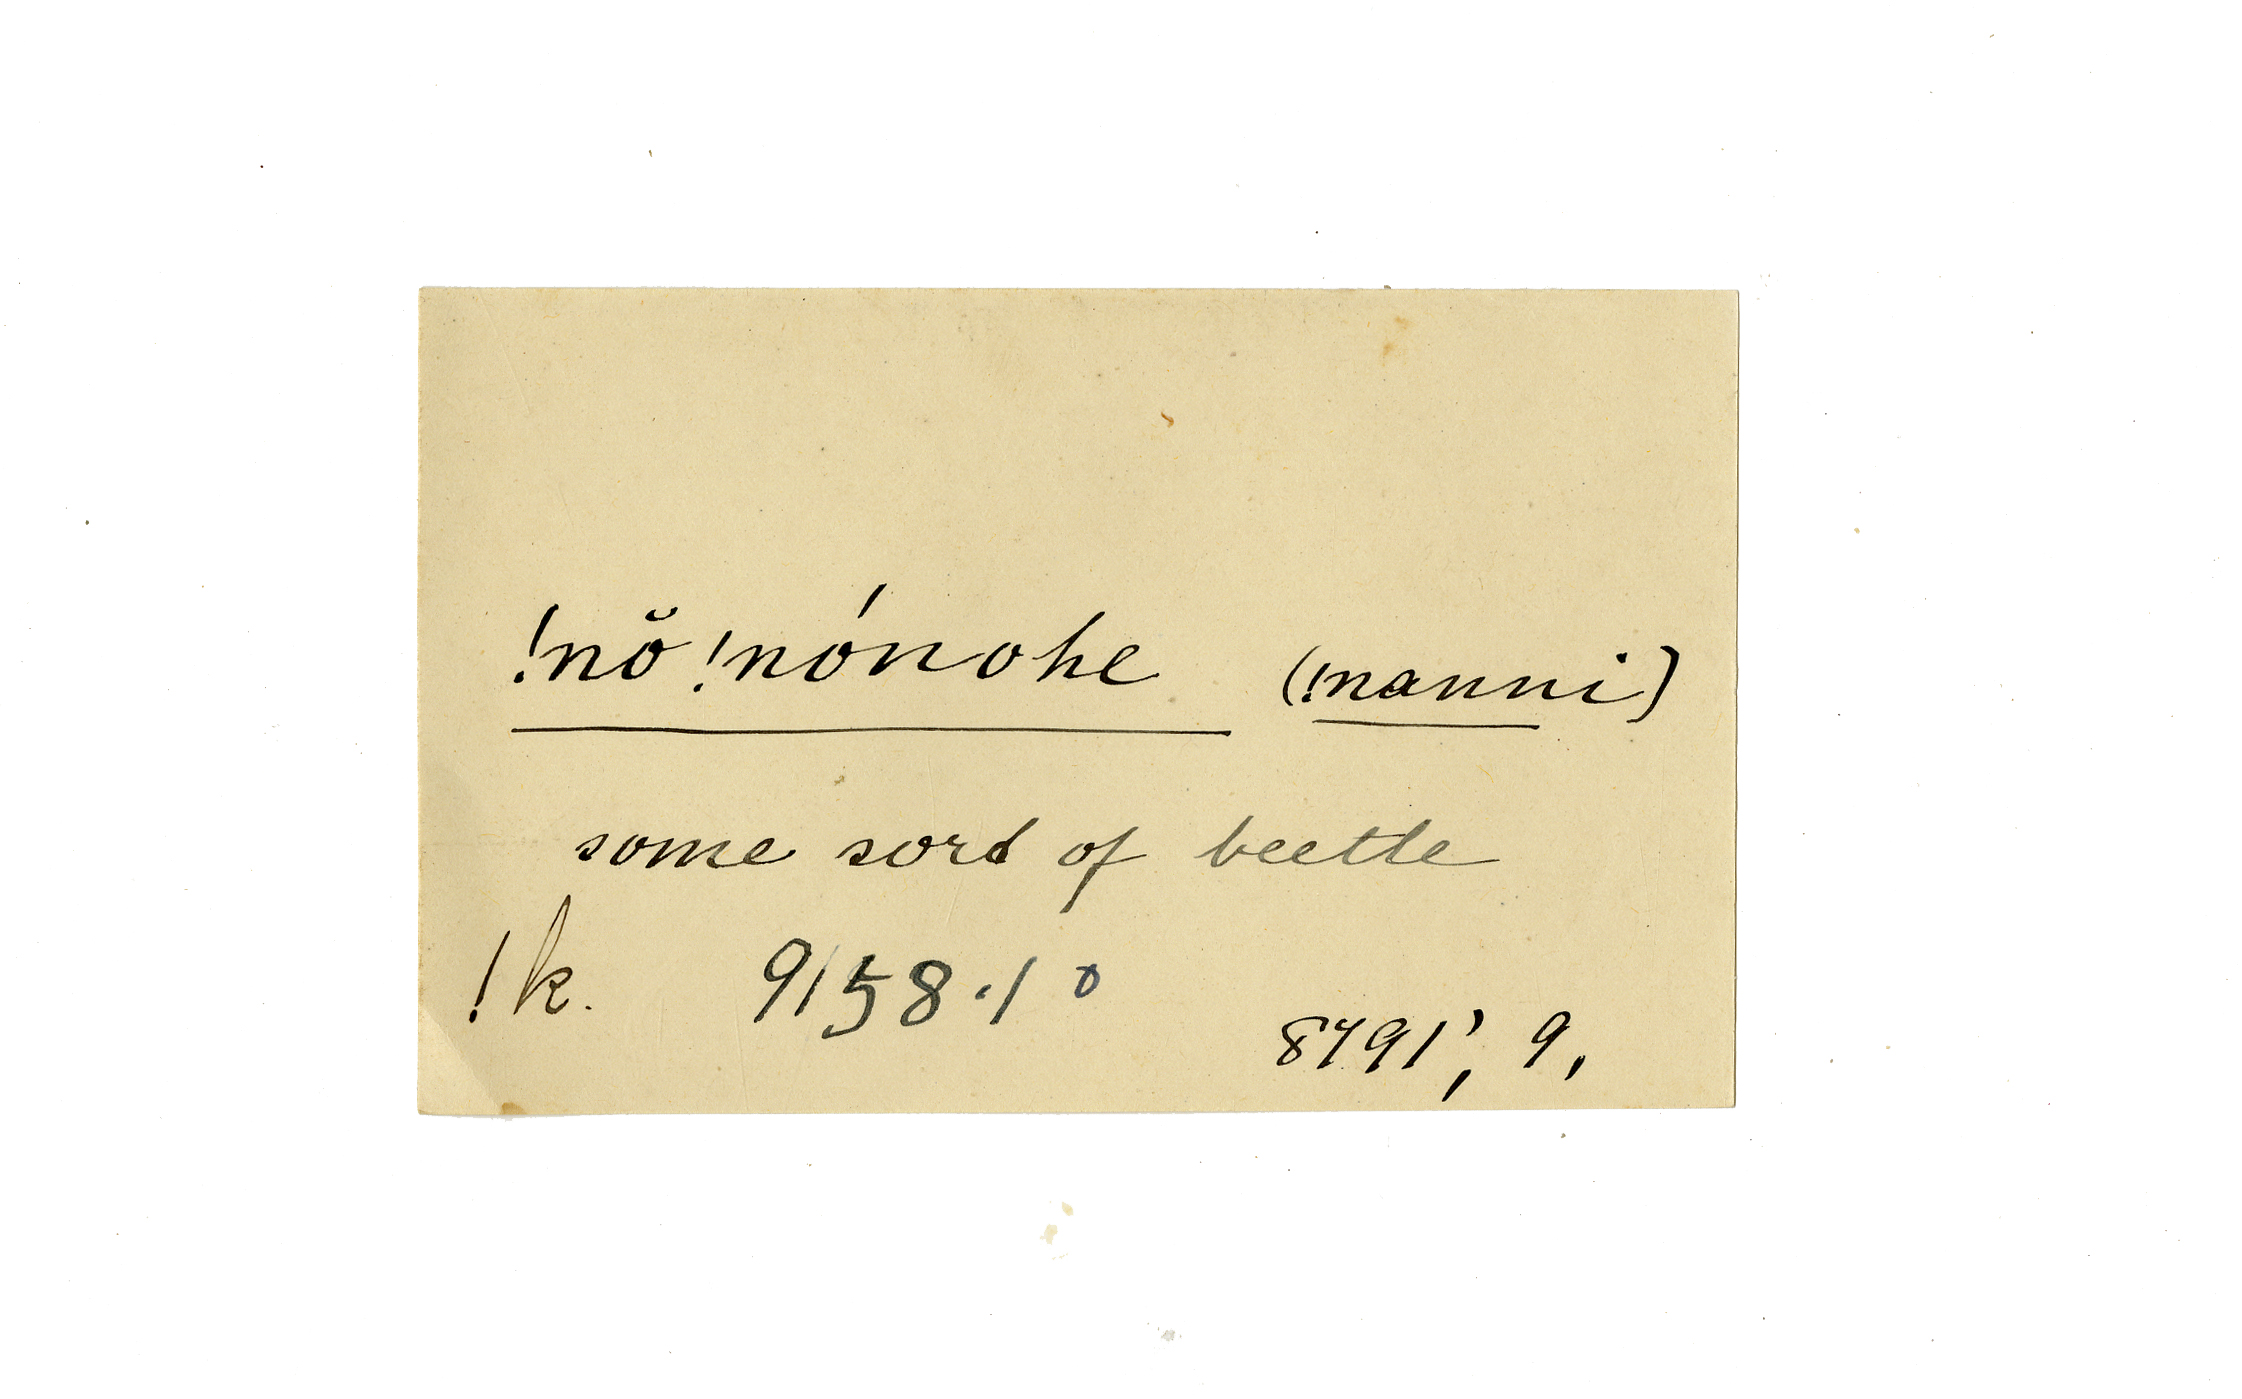 !nŏ!nónohe (!nanni)
some sort of beetle
!k. 9158.10
8791', 9,